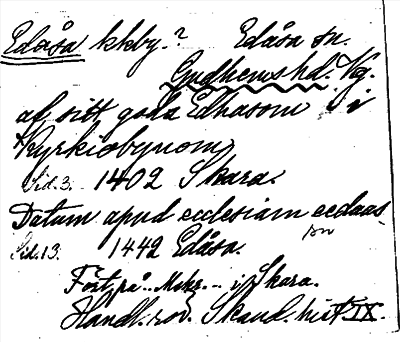 Edåsa kkby.? Edåsa sn.
Gudhems hd. Vg.
af sitt goda Edhasom i
Kyrkiobynom
Sid. 3. 1402 Skara.
Datum apud ecclesiam eedaas
Sid. 13. 1442 Edåsa.
Fört. på.. Mskr. .. i Skara.
Handl. rör. Skand. hist IX.